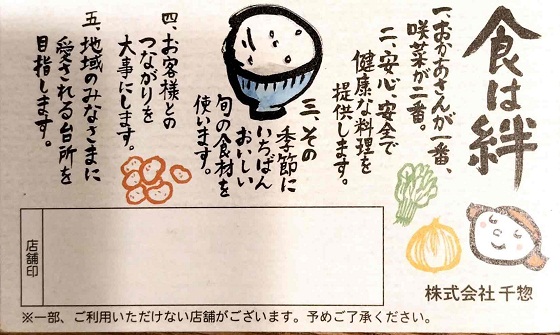 食は絆
一、おかあさんが一番、
咲菜が二番。
二、安心、安全で
健康な料理を
提供します。
三、その
季節に
いちばん
おいしい
旬の食材を
使います。
四、お客様との
つながりを
大事にします。
五、地域のみなさまに
愛される台所を
目指します。
株式会社 千惣
店舗印
※一部、ご利用いただけない店舗がございます。予めご了承ください。